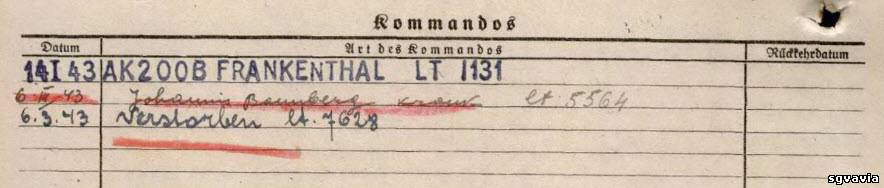 Kommandos
Datum Art des Kommandos Rückkehrdatum
14 I 43 AK200B FRANKENTHAL LT 1131
6. III. 43 Johannis Baumberg krank lt. 5564
6.3.43 Verstorben lt. 7628
sgvavia